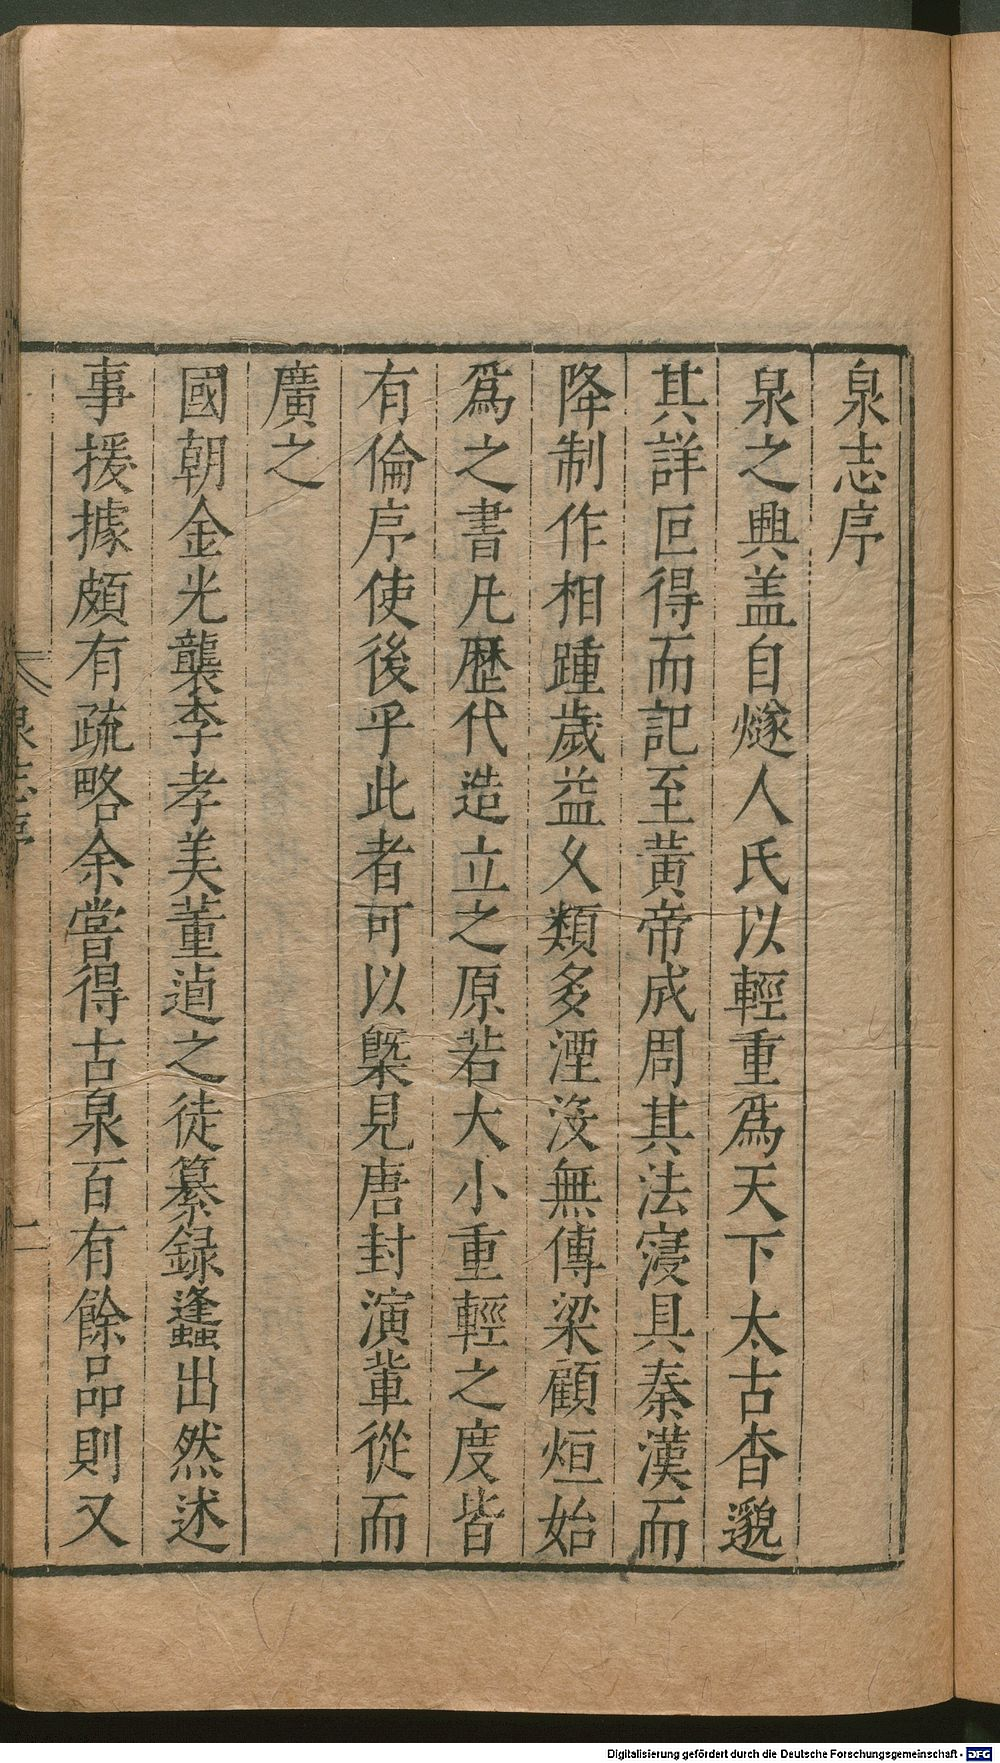 泉志序
泉之興盖自燧人氏以輕重爲天下太古杳邈
其詳叵得而記至黃帝成周其法寖具秦漢而
降制作相踵歲益久類多湮沒無傳梁顧烜始
爲之書凡歷代造立之原若大小重輕之度皆
有倫序使後乎此者可以槩見唐封演軰從而
廣之
國朝金光襲李孝美董逌之徒纂録蠭出然述
事援據頗有疏略余嘗得古泉百有餘品則又
泉志序
一
Digitalisierung gefördert durch die Deutsche Forschungsgemeinschaft - DFG